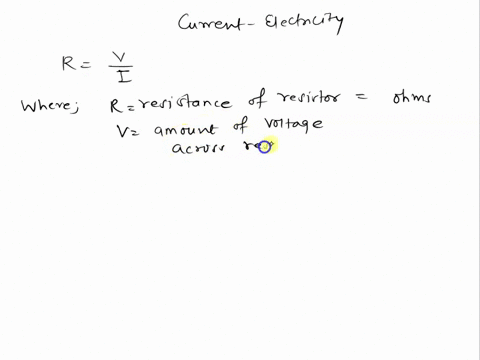 Current - Electricity
R = V/I
Where; R = resistance of resistor = ohms
V = amount of voltage
across